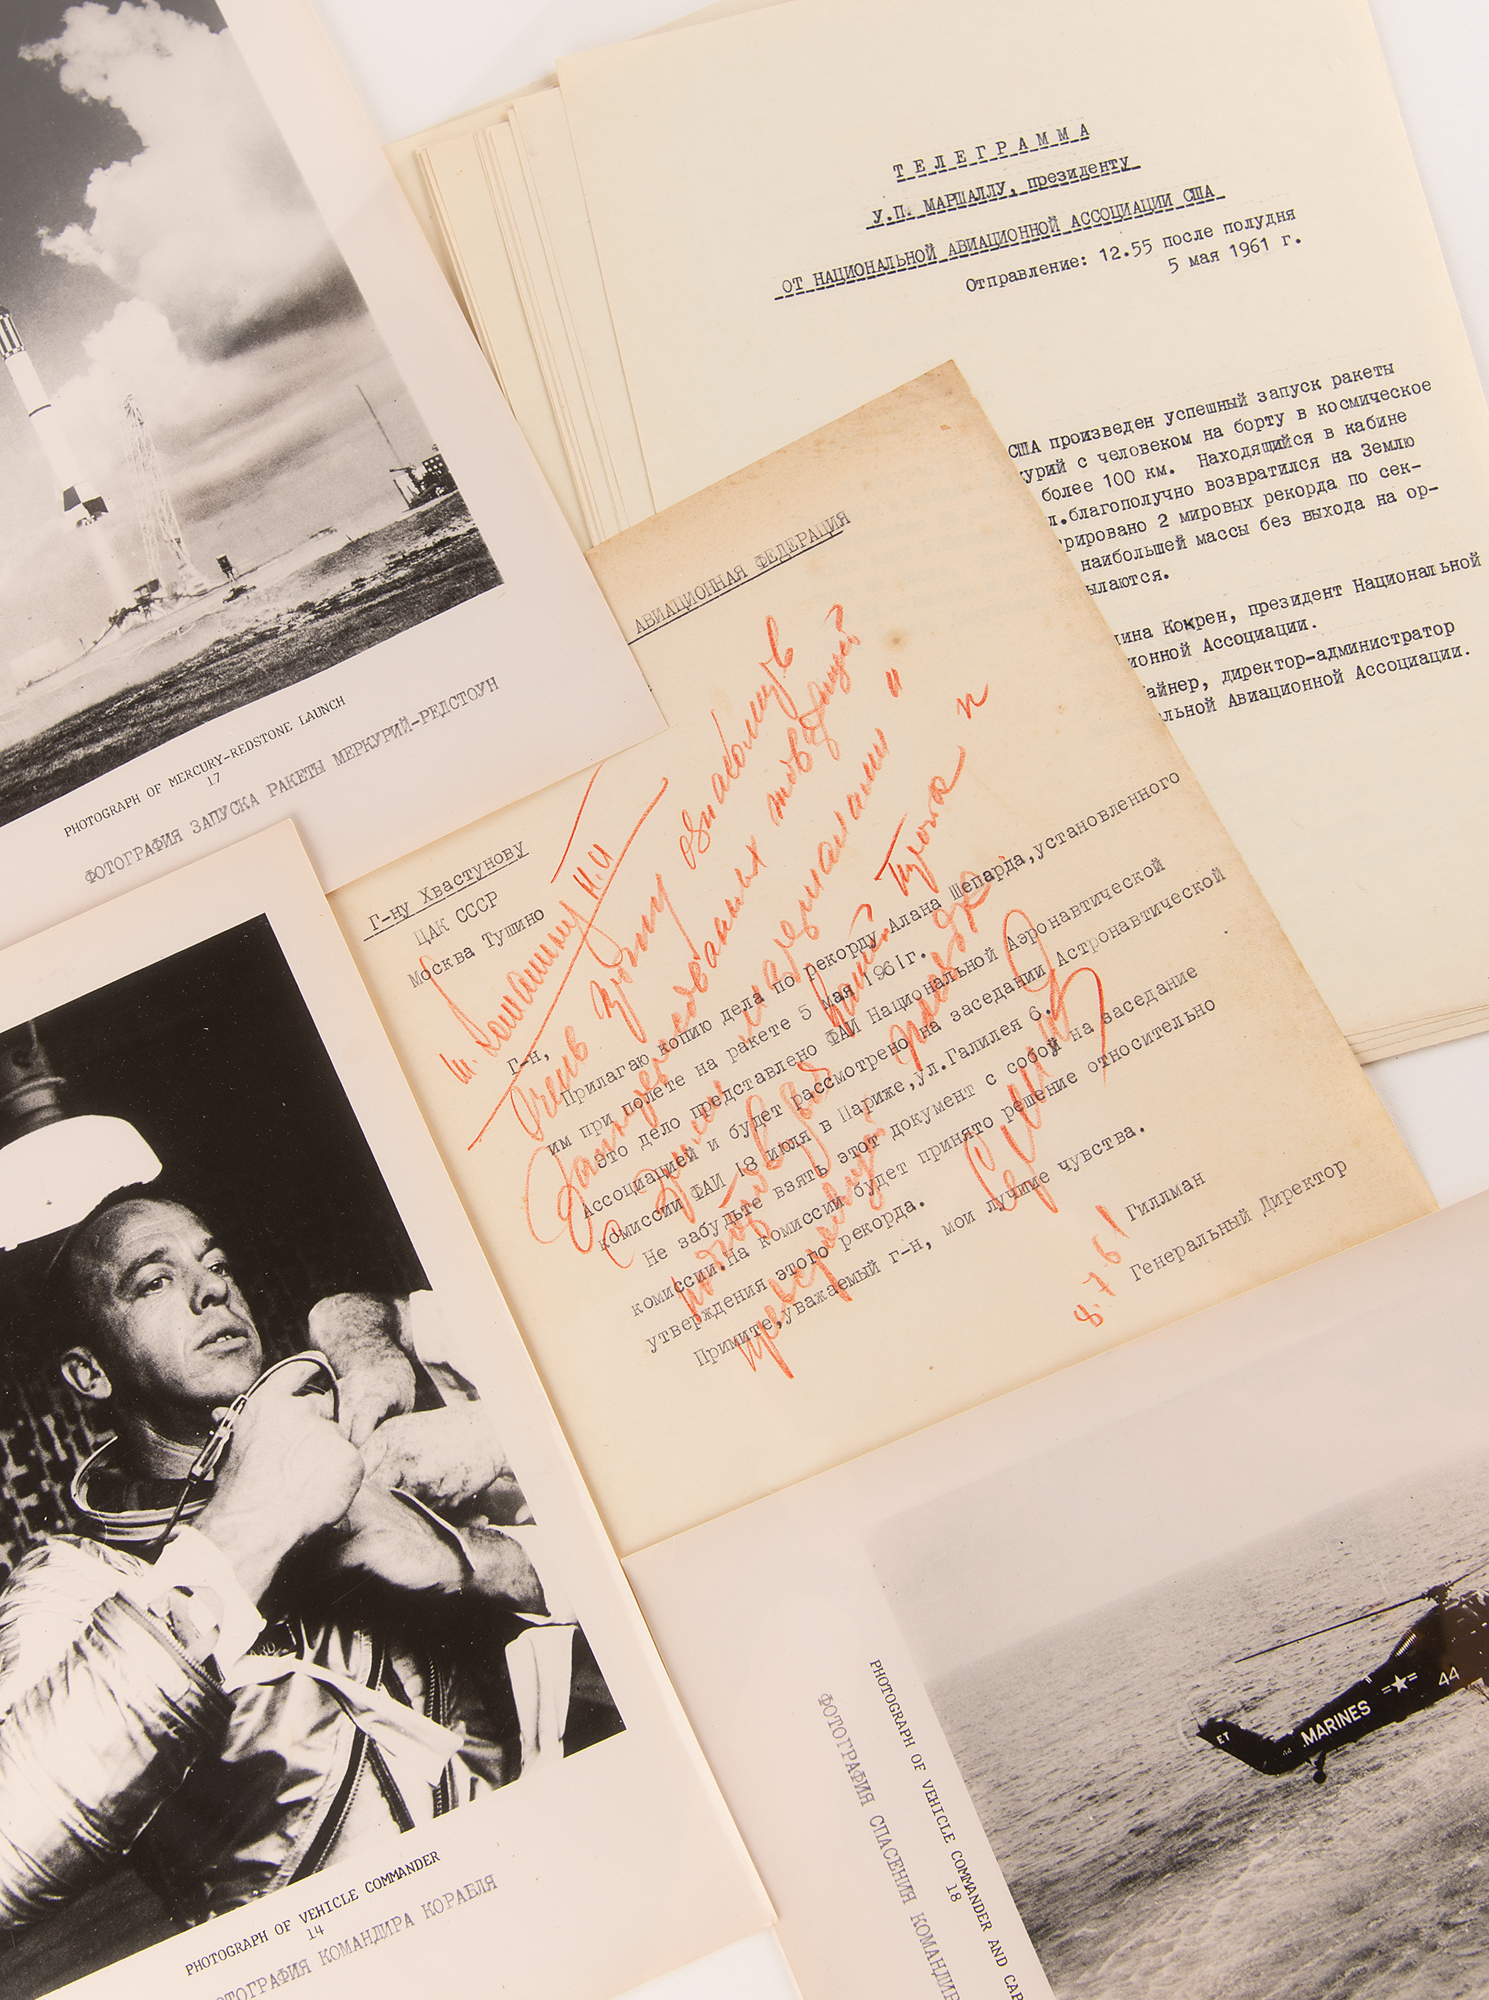 Т Е Л Е Г Р А М М А
У.П. МАРШАЛЛУ, президенту
ОТ НАЦИОНАЛЬНОЙ АВИАЦИОННОЙ АССОЦИАЦИИ США
Отправление: 12.55 после полудня
5 мая 1961 г.
США произведен успешный запуск ракеты
курий с человеком на борту в космическое
более 100 км. Находящийся в кабине
л.благополучно возвратился на Землю
рировано 2 мировых рекорда по сек-
наибольшей массы без выхода на ор-
ылаются.
лина Кокрен, президент Национальной
ионной Ассоциации.
айнер, директор-администратор
льной Авиационной Ассоциации.
PHOTOGRAPH OF MERCURY-REDSTONE LAUNCH
17
ФОТОГРАФИЯ ЗАПУСКА РАКЕТЫ МЕРКУРИЙ-РЕДСТОУН
АВИАЦИОННАЯ ФЕДЕРАЦИЯ
Г-ну Хвастунову
ЦАК СССР
Москва Тушино
Очень прошу ознакомить
заинтересованных товарищей
с этими "материалами"
8.7.61
Г-н,
Прилагаю копию дела по рекорду Алана Шепарда,установленного
им при полете на ракете 5 мая 1961г.
Это дело представлено ФАИ Национальной Аэронавтической
Ассоциацией и будет рассмотрено на заседании Астронавтической
комиссии ФАИ 18 июля в Париже,ул.Галилея 6.
Не забудьте взять этот документ с собой на заседание
комиссии.На комиссии будет принято решение относительно
утверждения этого рекорда.
Примите,уважаемый г-н, мои лучшие чувства.
Гиллман
Генеральный Директор
PHOTOGRAPH OF VEHICLE COMMANDER
14
ОТОГРАФИЯ КОМАНДИРА КОРАБЛЯ
PHOTOGRAPH OF VEHICLE COMMANDER AND CAP
18
ФОТОГРАФИЯ СПАСЕНИЯ КОМАНДИР
ET
44
MARINES
44